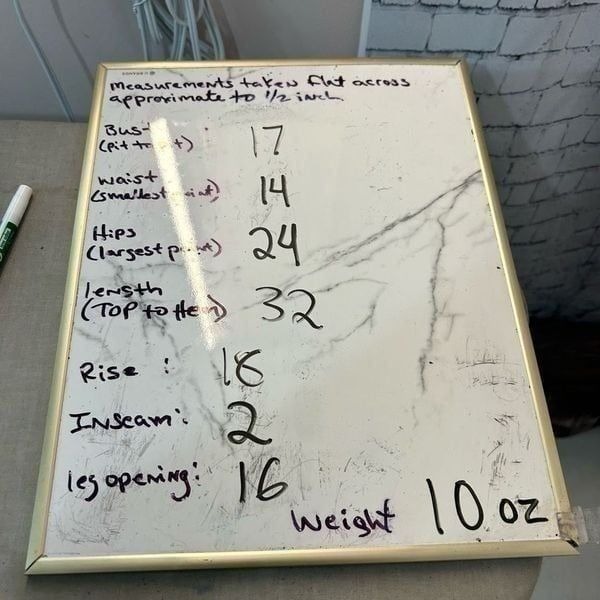 measurements taken flat across
approximate to 1/2 inch
Bust 17
(pit to pit)
waist 14
(smallest point)
Hips 24
(largest point)
length 32
(TOP to Hem)
Rise : 18
Inseam: 2
leg opening: 16
Weight 10 oz